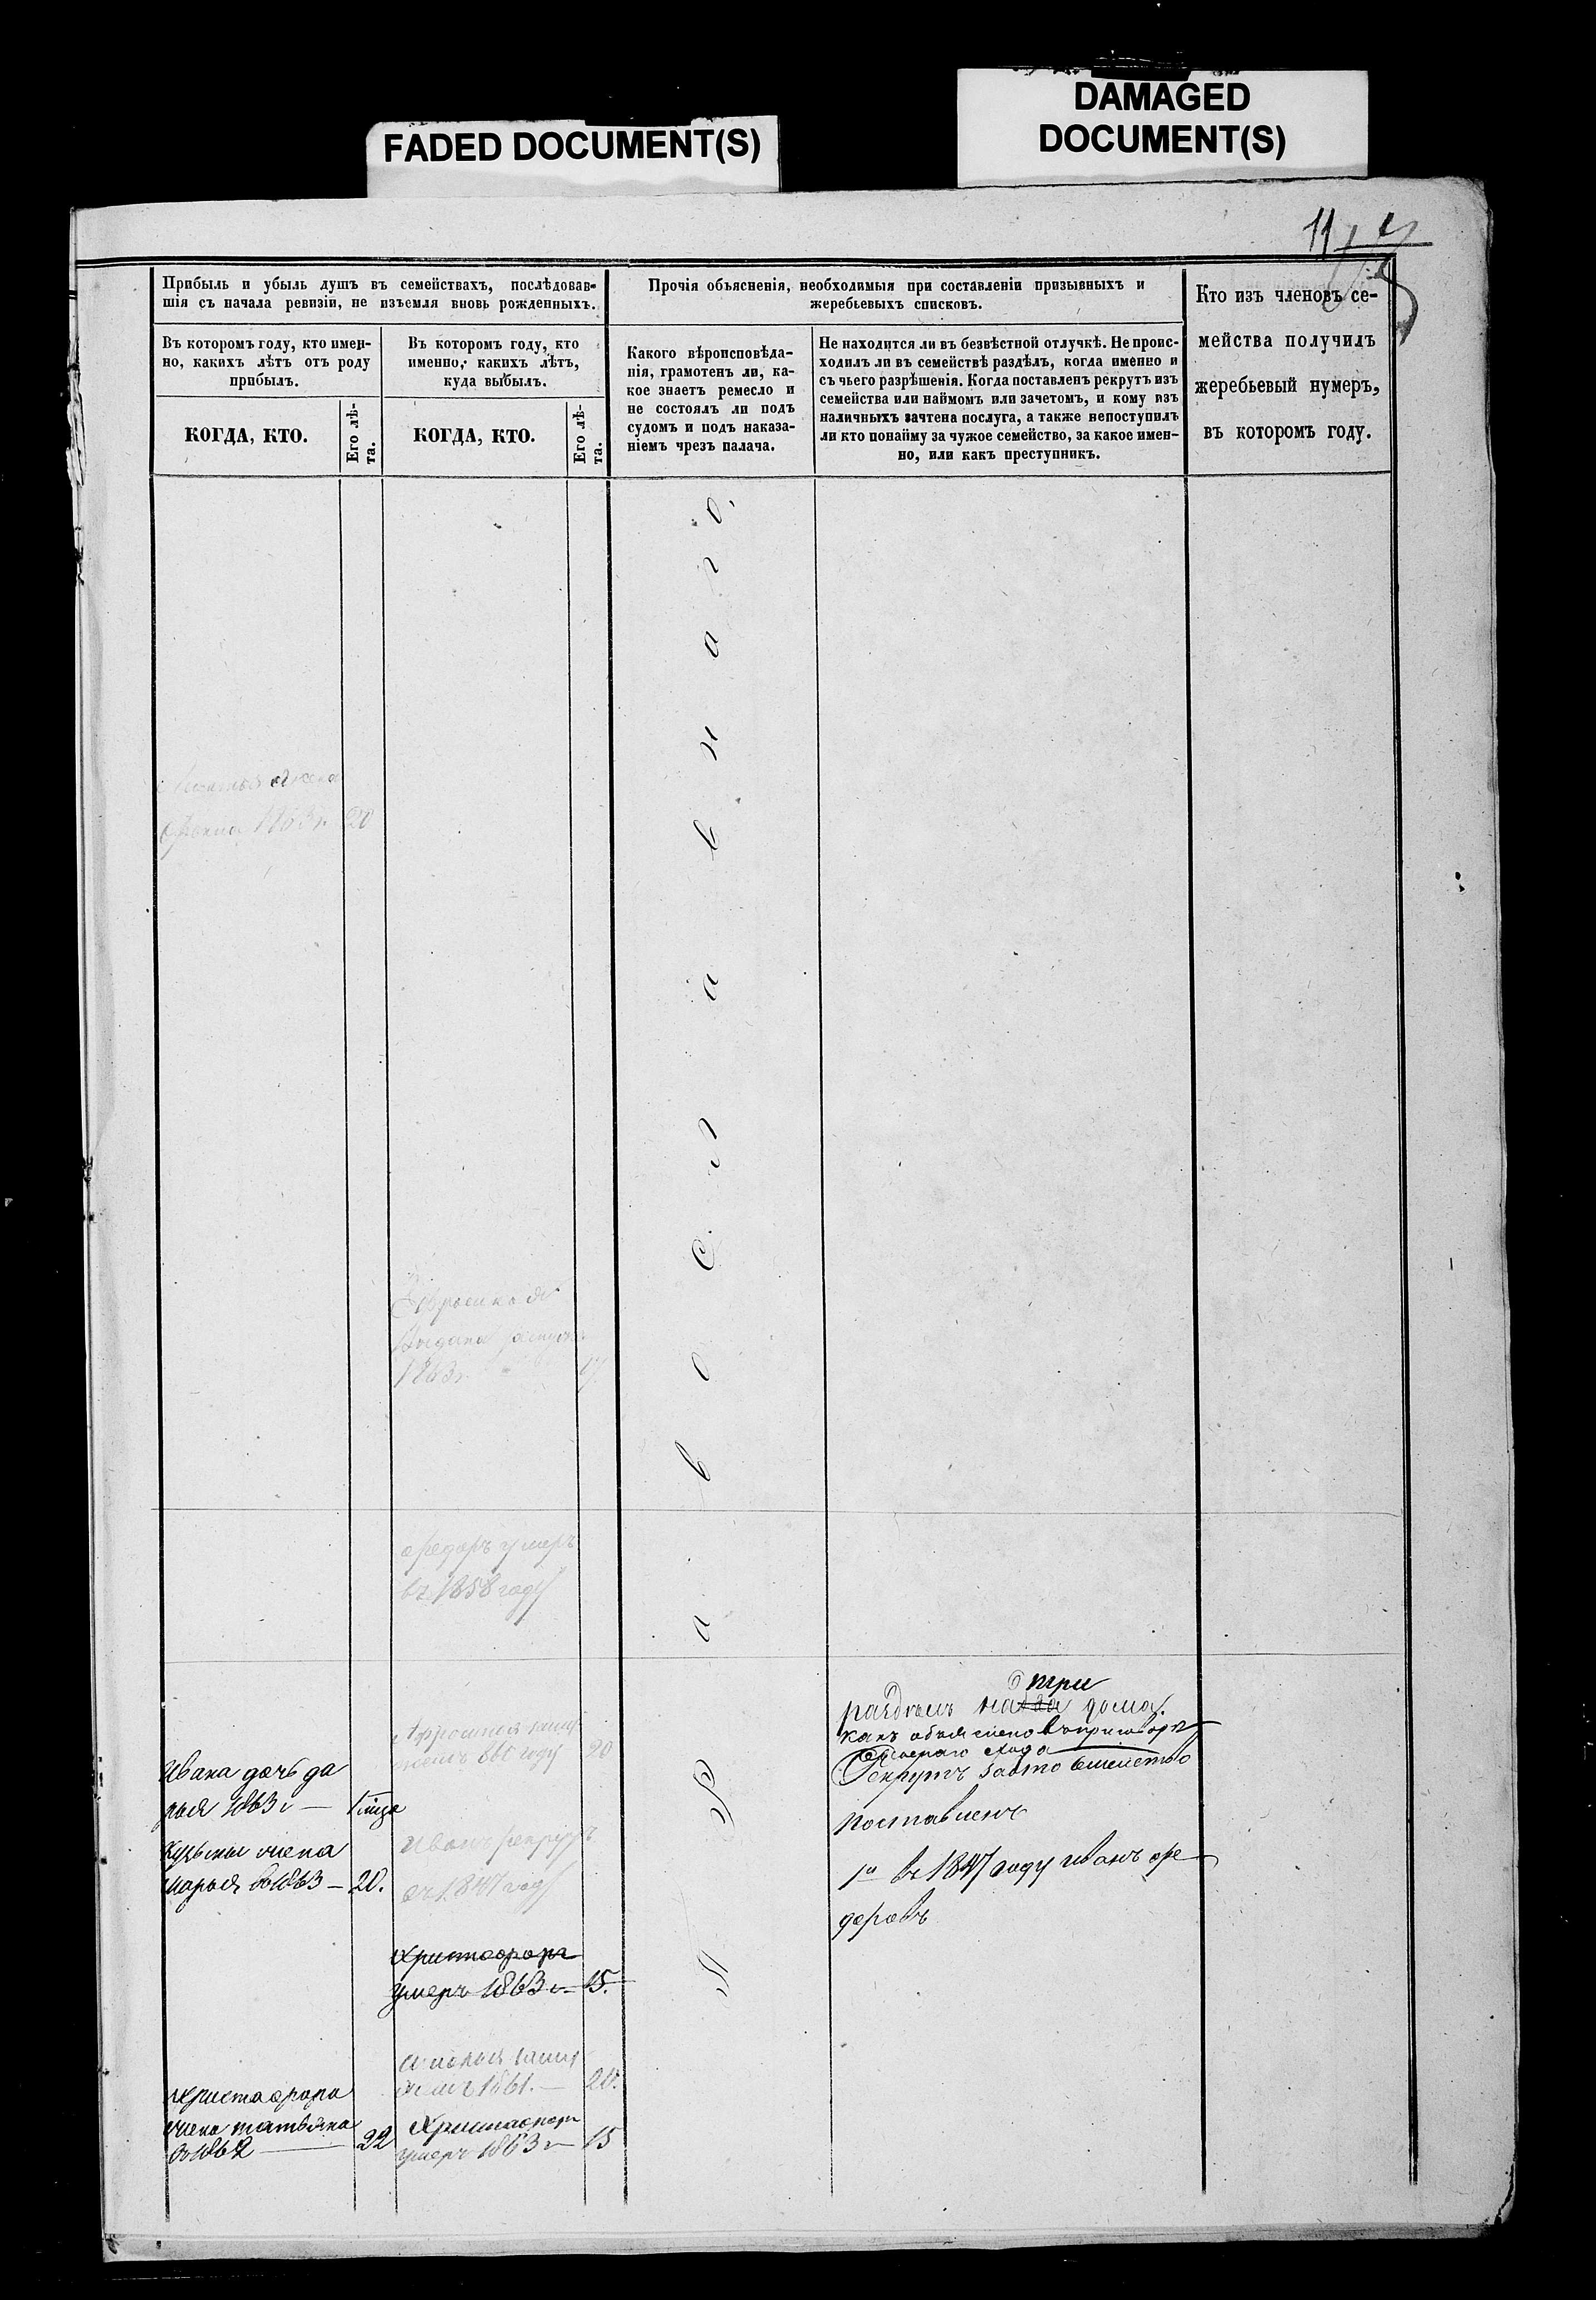 FADED DOCUMENT(S)
DAMAGED
DOCUMENT(S)
11
Прибыль и убыль душъ въ семействахъ, послѣдовав-
шія съ начала ревизіи, не изъемля вновь рожденныхъ.
Въ которомъ году, кто имен-
но, какихъ лѣтъ отъ роду
прибылъ.
КОГДА, КТО.
Его лѣ-
та.
Въ которомъ году, кто
именно, какихъ лѣтъ,
куда выбылъ.
КОГДА, КТО.
Его лѣ-
та.
Прочія объясненія, необходимыя при составленіи призывныхъ и
жеребьевыхъ списковъ.
Какого вѣроисповѣда-
нія, грамотенъ ли, ка-
кое знаетъ ремесло и
не состоялъ ли подъ
судомъ и подъ наказа-
ніемъ чрезъ палача.
Не находится ли въ безвѣстной отлучкѣ. Не проис-
ходилъ ли въ семействѣ раздѣлъ, когда именно и
съ чьего разрѣшенія. Когда поставленъ рекрутъ изъ
семейства или наймомъ или зачетомъ, и кому изъ
наличныхъ зачтена послуга, а также непоступилъ
ли кто понайму за чужое семейство, за какое имен-
но, или какъ преступникъ.
Кто изъ членовъ се-
мейства получилъ
жеребьевый нумеръ,
въ которомъ году.
жена
1863г. 20
Православнаго.
Ефросинья
Выдана замуж
1863г. 17
Федоръ умеръ
въ 1858 году
замуж
году 20
Ивана дочь да
рья 1863 г —
Кузьмы жена
Марья въ 1863 — 20.
Иванъ рекрутъ
въ 1847 году
Христофоръ
умеръ 1863 г — 15.
замуж
1861. — 20.
Христофора
жена татьяна
въ 1862 — 22
Христофоръ
умеръ 1863 г — 15
три
раздѣлъ на два дома.
какъ объяснено въ приговоре
схода
Рекрутъ
поставленъ
1й въ 1847 году иванъ фе
доровъ